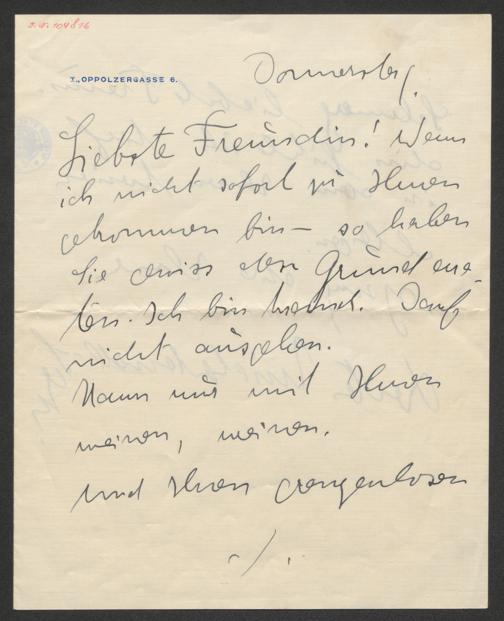 I.N. 104816
I., OPPOLZERGASSE 6.
Donnerstag.
Liebste Freundin! Wenn
ich nicht sofort zu Ihnen
gekommen bin – so haben
Sie gewiss den Grund erra-
ten. Ich bin krank. Darf
nicht ausgehen.
Kann nur mit Ihnen
weinen, weinen.
Und Ihnen grenzenlosen
./.